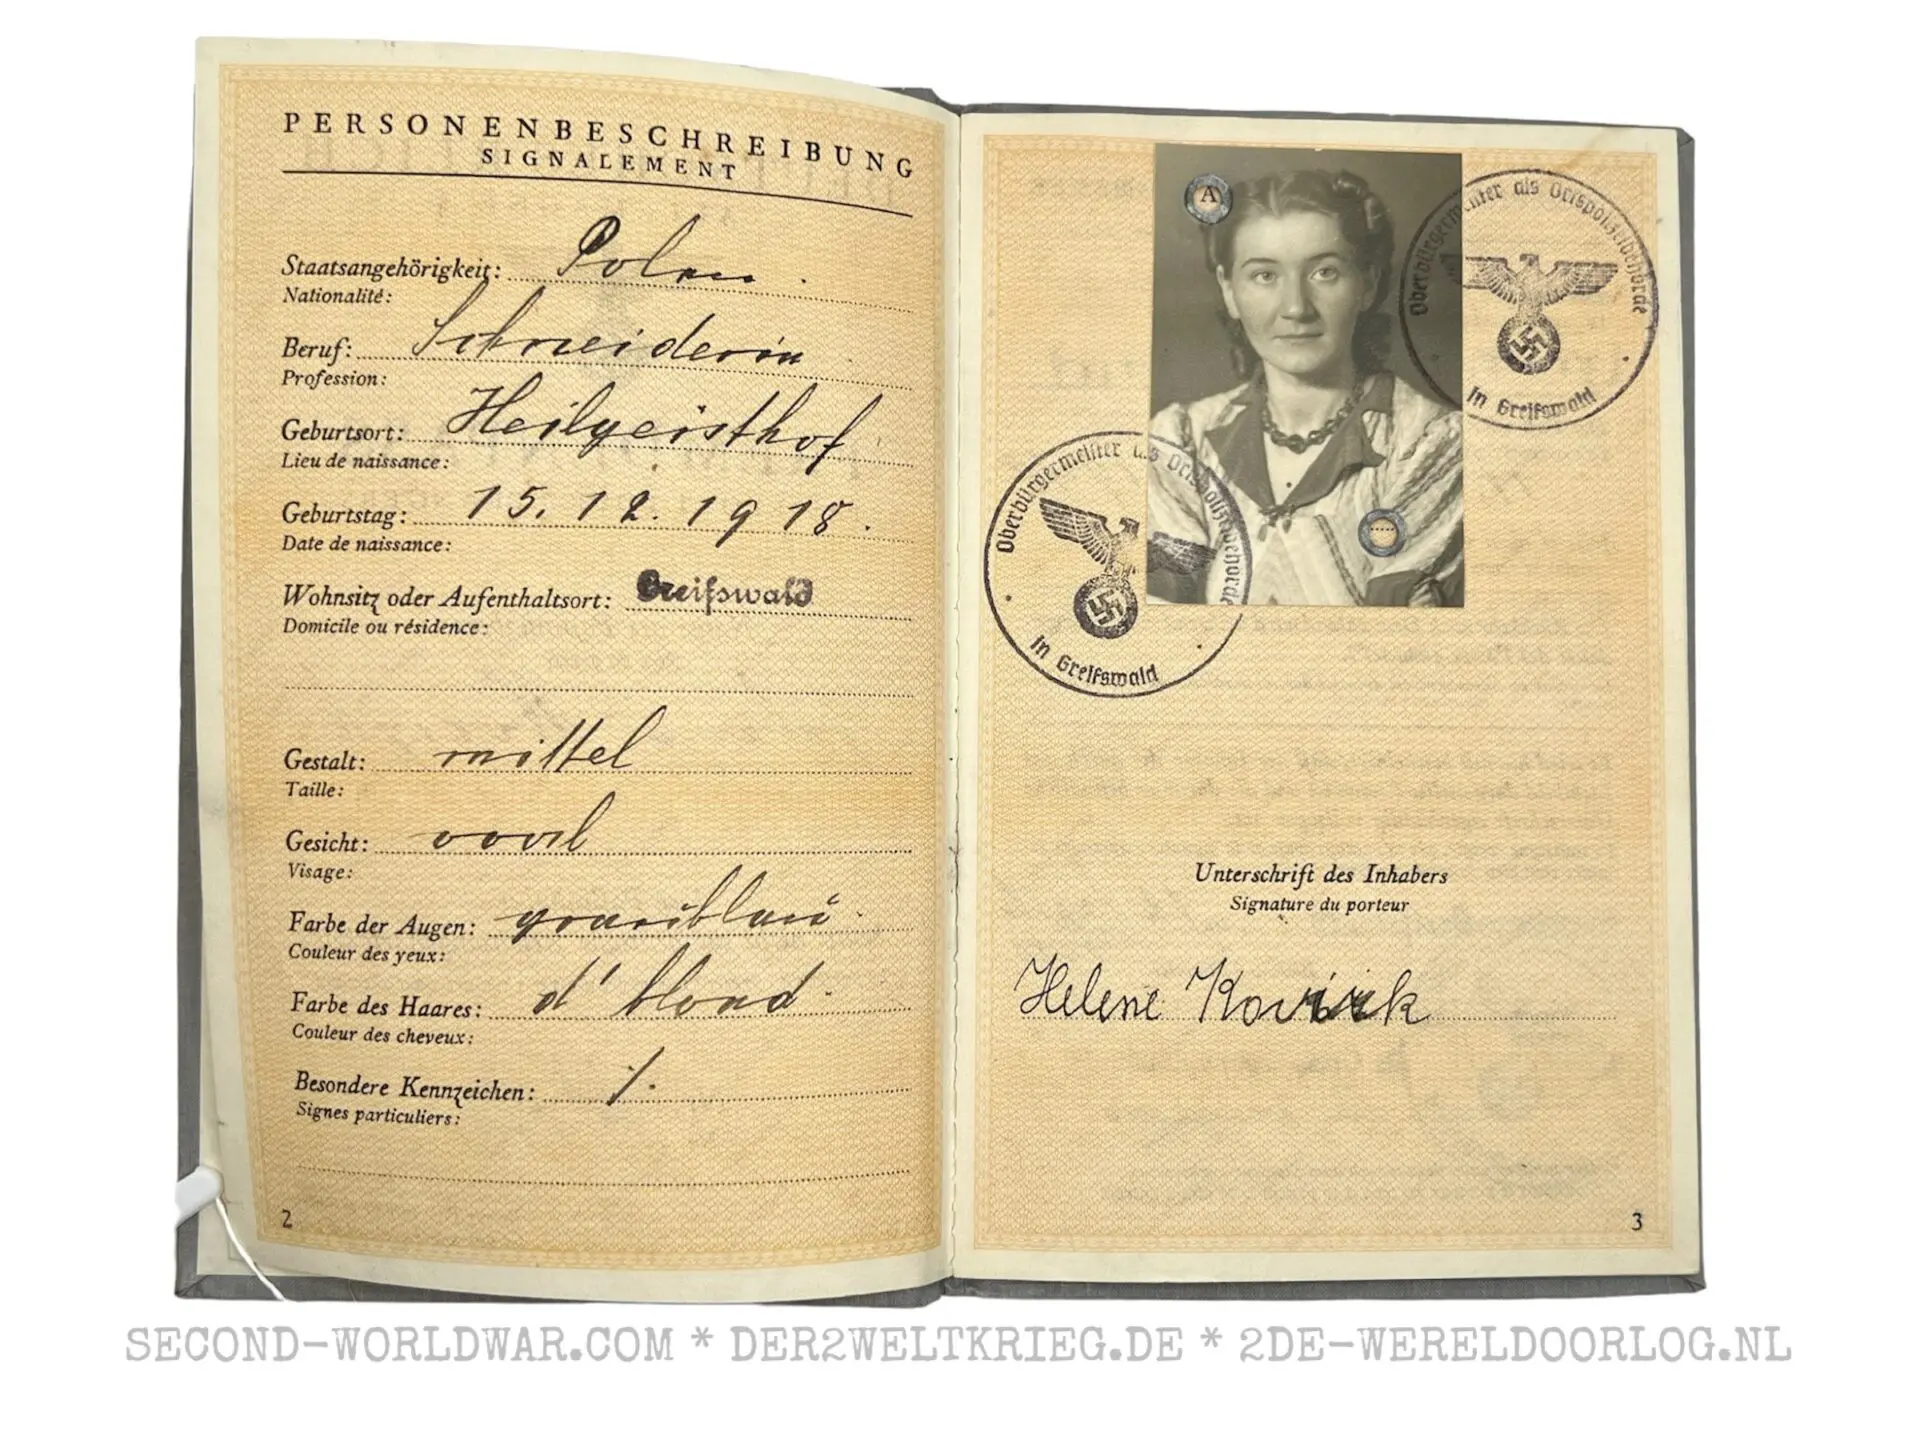 PERSONENBESCHREIBUNG
SIGNALEMENT
Staatsangehörigkeit: Polen.
Nationalité:
Beruf: Schneiderin
Profession:
Geburtsort: Heilgeisthof
Lieu de naissance:
Geburtstag: 15.12.1918.
Date de naissance:
Wohnsitz oder Aufenthaltsort: Greifswald
Domicile ou résidence:
Gestalt: mittel
Taille:
Gesicht: oval
Visage:
Farbe der Augen: graublau
Couleur des yeux:
Farbe des Haares: d' blond
Couleur des cheveux:
Besondere Kennzeichen: /.
Signes particuliers:
2
A
Oberbürgermeister als Ortspolizeibehörde
in Greifswald
Oberbürgermeister als Ortspolizeibehörde
in Greifswald
Unterschrift des Inhabers
Signature du porteur
Helene
3
SECOND-WORLDWAR.COM * DER2WELTKRIEG.DE * 2DE-WERELDOORLOG.NL